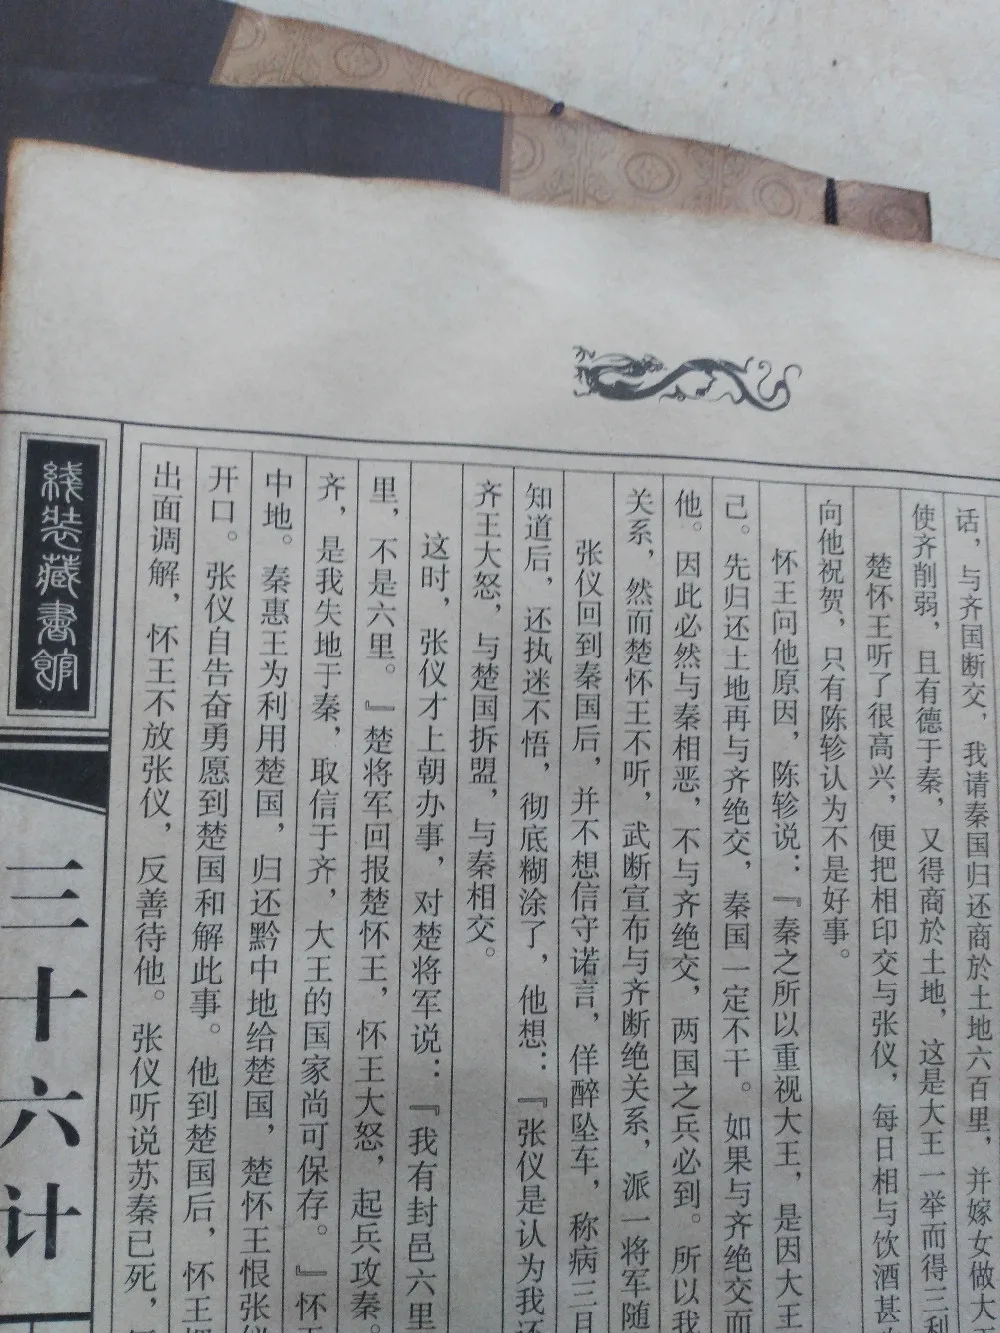 话，与齐国断交，我请秦国归还商於土地六百里，并嫁女做大
使齐削弱，且有德于秦，又得商於土地，这是大王一举而得三利
楚怀王听了很高兴，便把相印交与张仪，每日相与饮酒甚
向他祝贺，只有陈轸认为不是好事。
怀王问他原因，陈轸说：『秦之所以重视大王，是因大王
己。先归还土地再与齐绝交，秦国一定不干。如果与齐绝交而
他。因此必然与秦相恶，不与齐绝交，两国之兵必到。所以我
关系，然而楚怀王不听，武断宣布与齐断绝关系，派一将军随
张仪回到秦国后，并不想信守诺言，佯醉坠车，称病三月
知道后，还执迷不悟，彻底糊涂了，他想：『张仪是认为我还
齐王大怒，与楚国拆盟，与秦相交。
这时，张仪才上朝办事，对楚将军说：『我有封邑六里
里，不是六里。』楚将军回报楚怀王，怀王大怒，起兵攻秦。
齐，是我失地于秦，取信于齐，大王的国家尚可保存。』怀王
中地。秦惠王为利用楚国，归还黔中地给楚国，楚怀王恨张仪
开口。张仪自告奋勇愿到楚国和解此事。他到楚国后，怀王
出面调解，怀王不放张仪，反善待他。张仪听说苏秦已死，
线装藏書館
三十六计